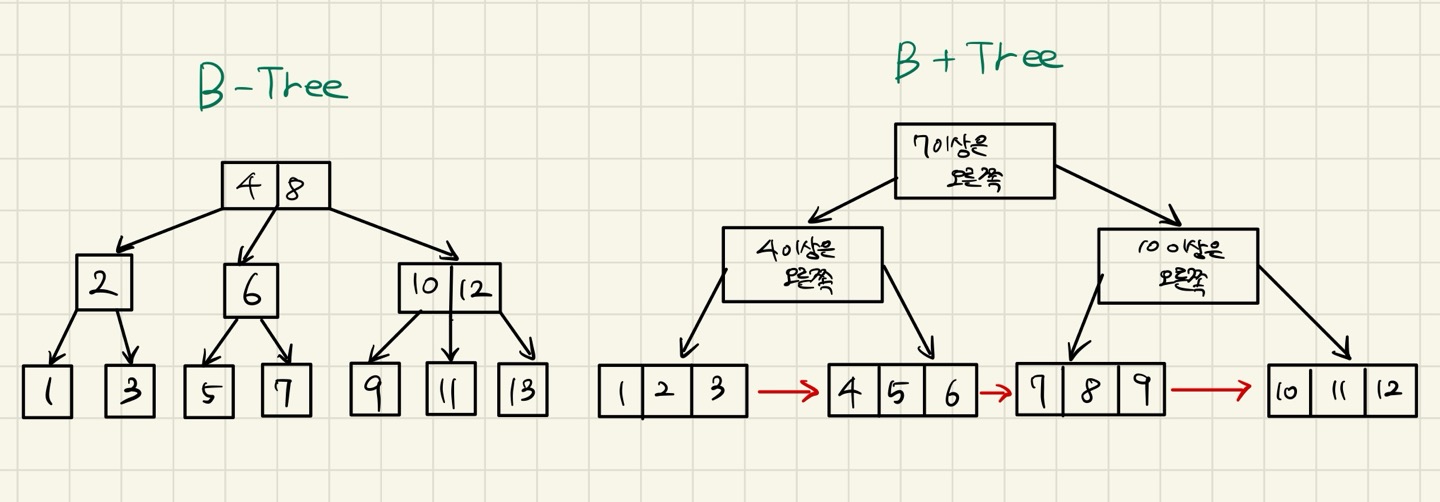 B-Tree
4 8
2
6
10 12
1
3
5
7
9
11
13
B+Tree
7이상은
오른쪽
4이상은
오른쪽
10이상은
오른쪽
1 2 3
4 5 6
7 8 9
10 11 12